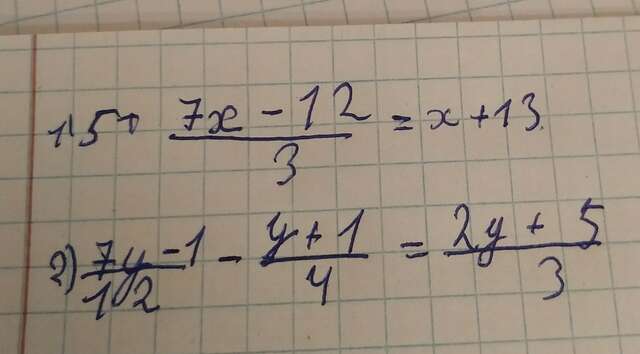 1) 5 + (7x - 12)/3 = x + 13
2) (7y - 1)/12 - (y + 1)/4 = (2y + 5)/3